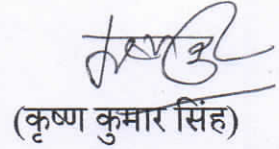 (कृष्ण कुमार सिंह)